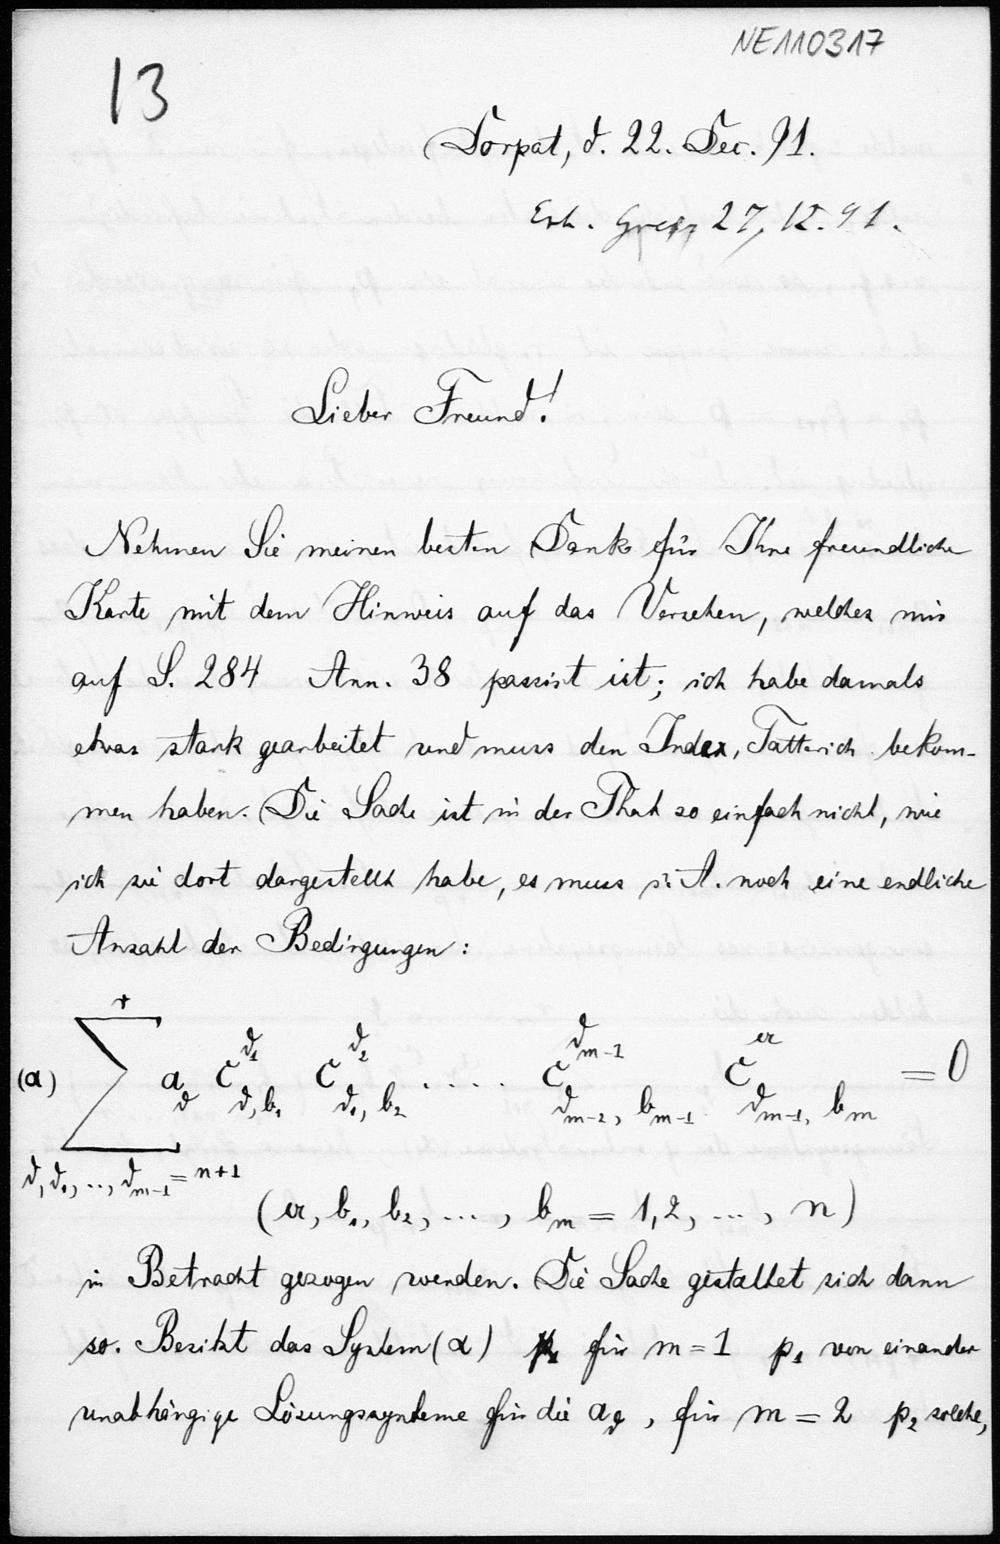 NE110317
13
Dorpat, d. 22. Dec. 91.
Erh. 27/12. 91.
Lieber Freund!
Nehmen Sie meinen besten Dank für Ihre freundliche
Karte mit dem Hinweis auf das Versehen, welches mir
auf S. 284 Ann. 38 passirt ist; ich habe damals
etwas stark gearbeitet und muss den Index, Tatterich bekom-
men haben. Die Sache ist in der That so einfach nicht, wie
ich sie dort dargestellt habe, es muss s. A. noch eine endliche
Anzahl der Bedingungen:
(α) Σ^r_{d, d₁, .., d_{m-1} = n+1} a_d C^{d₁}_{d, b₁} C^{d₂}_{d₁, b₂} ..... C^{d_{m-1}}_{d_{m-2}, b_{m-1}} C^{a}_{d_{m-1}, b_m} = 0
(a, b₁, b₂, ..., b_m = 1, 2, ..., n)
in Betracht gezogen werden. Die Sache gestaltet sich dann
so. Besitzt das System (α) für m = 1 p₁ von einander
unabhängige Lösungssysteme für die a_d, für m = 2 p₂ solche,